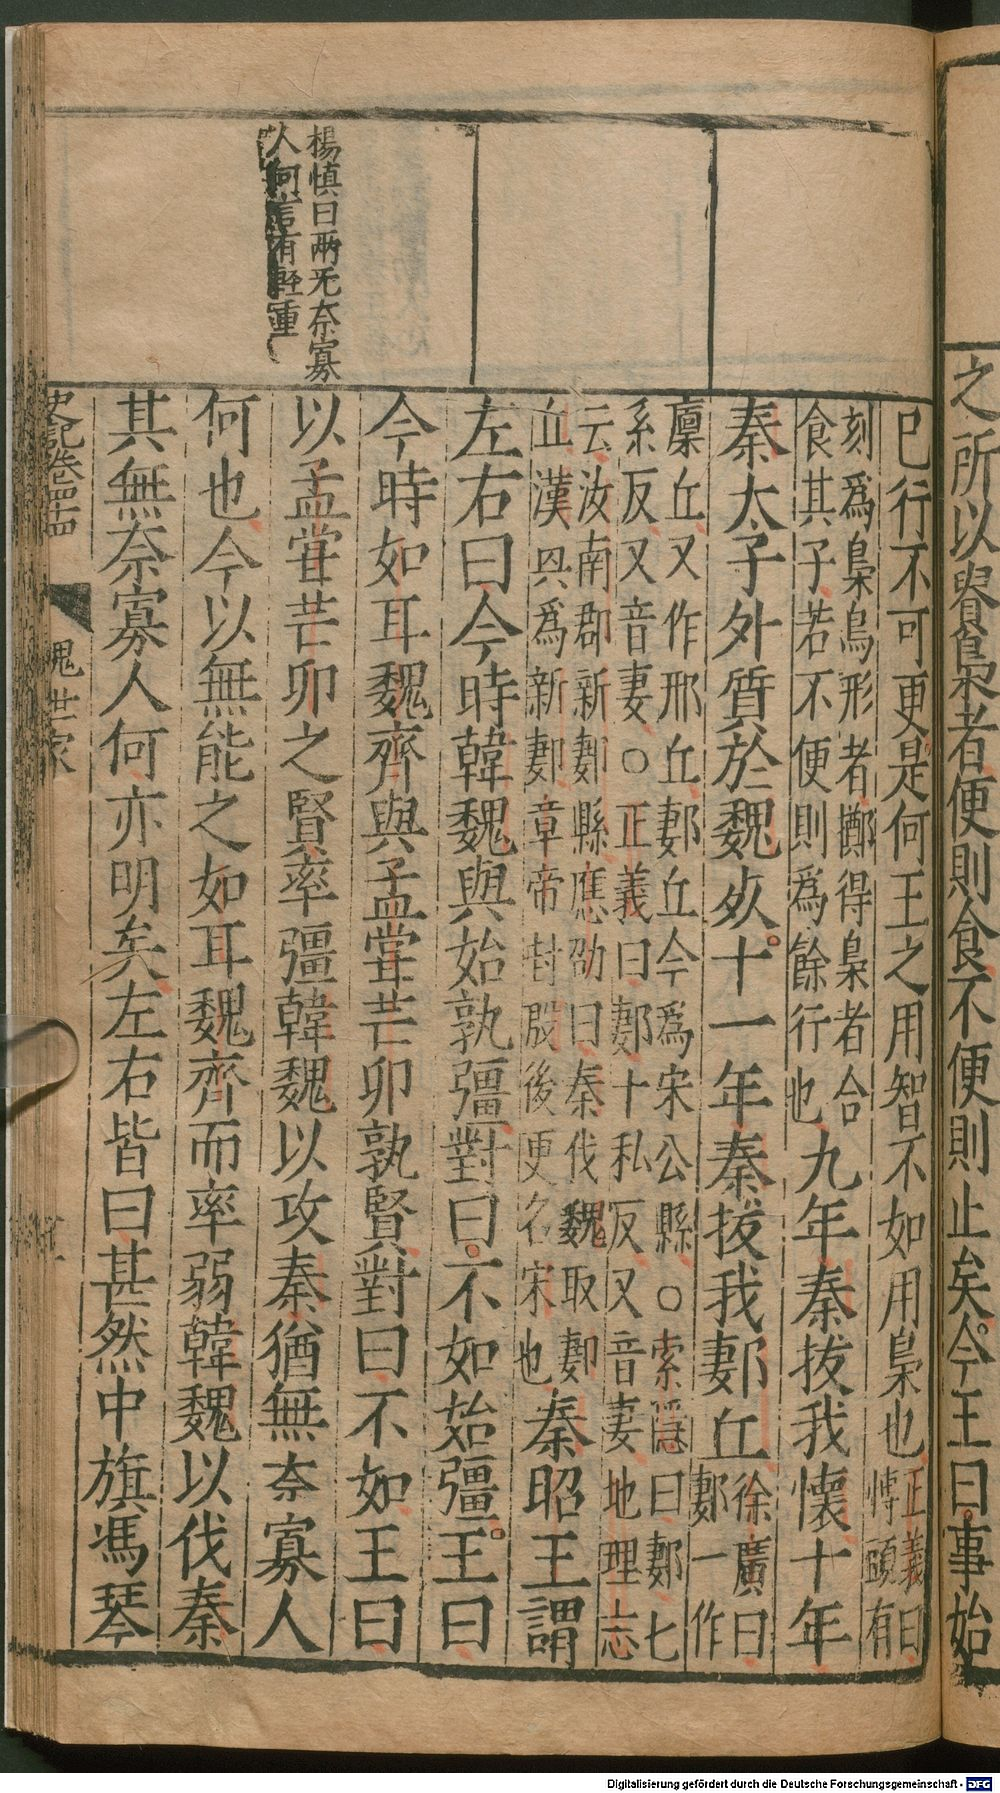 之所以貴梟者便則食不便則止矣今王曰事始
已行不可更是何王之用智不如用梟也正義曰
博頭有
刻爲梟鳥形者擲得梟者合
食其子若不便則爲餘行也九年秦拔我懷十年
秦太子外質於魏死十一年秦拔我郪丘徐廣曰
郪一作
廩丘又作邢丘郪丘今爲宋公縣○索隱曰郪七
系反又音妻○正義曰郪十私反又音妻地理志
云汝南郡新郪縣應劭曰秦伐魏取郪
丘漢興爲新郪章帝封殷後更名宋也秦昭王謂
左右曰今時韓魏與始孰彊對曰不如始彊王曰
今時如耳魏齊與孟甞芒卯孰賢對曰不如王曰
以孟甞芒卯之賢率彊韓魏以攻秦猶無奈寡人
何也今以無能之如耳魏齊而率弱韓魏以伐秦
其無奈寡人何亦明矣左右皆曰甚然中旗馮琴
楊慎曰兩无奈寡
人何言有輕重
史記卷四十四
魏世家
Digitalisierung gefördert durch die Deutsche Forschungsgemeinschaft - DFG